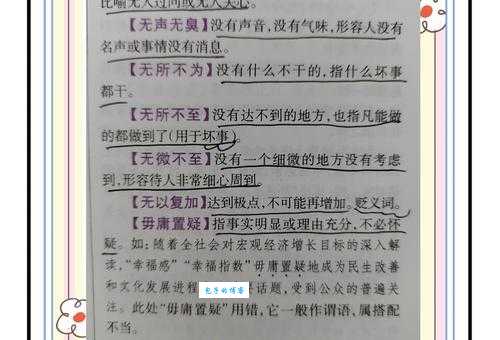 比喻无人过问或无人关心。
【无声无臭】没有声音,没有气味,形容人没有
名声或事情没有消息。
【无所不为】没有什么不干的,指什么坏事
都干。
【无所不至】没有达不到的地方,也指凡能做
的都做到了(用于坏事)。
【无微不至】没有一个细微的地方没有考虑
到,形容待人非常细心周到。
【无以复加】达到极点,不可能再增加。贬义词。
【毋庸置疑】指事实明显或理由充分,不必怀
疑。如:随着全社会对宏观经济增长目标的深入解
读,“幸福感”“幸福指数”毋庸置疑地成为民生改善
和文化发展进程 话题,受到公众的普遍关
包子的博客
注。此处“毋庸置疑”用错,它一般作谓语,属搭配
不当。